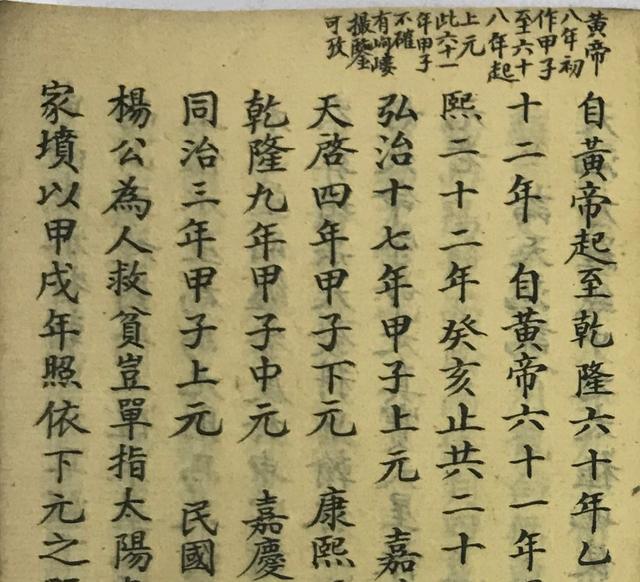 黃帝
八年初
作甲子
至六十
八年起
上元
此六十一
年甲子
不確
有岣嶁
撮鑒
可攷
自黃帝起至乾隆六十年乙
十二年 自黃帝六十一年
熙二十二年癸亥止共二十
弘治十七年甲子上元 嘉
天啓四年甲子下元 康熙
乾隆九年甲子中元 嘉慶
同治三年甲子上元 民國
楊公為人救貧豈單指太陽
家墳以甲戌年照依下元之